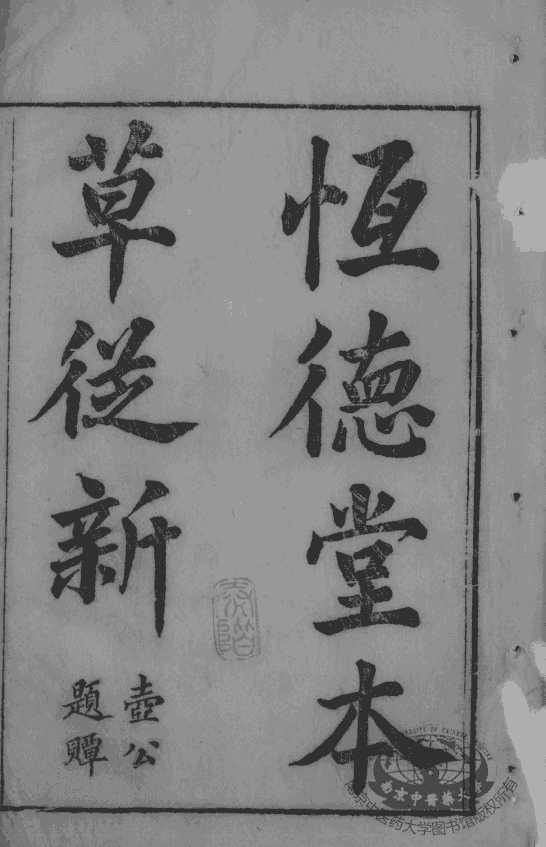 恆德堂本
草從新
壺公
題
南京中医药大学图书馆版权所有